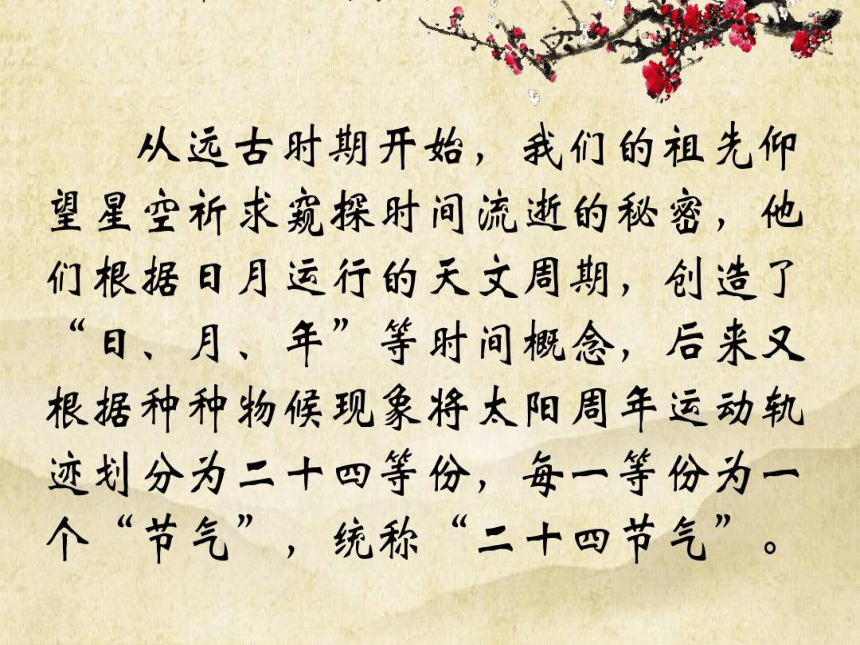 从远古时期开始，我们的祖先仰
望星空祈求窥探时间流逝的秘密，他
们根据日月运行的天文周期，创造了
“日、月、年”等时间概念，后来又
根据种种物候现象将太阳周年运动轨
迹划分为二十四等份，每一等份为一
个“节气”，统称“二十四节气”。